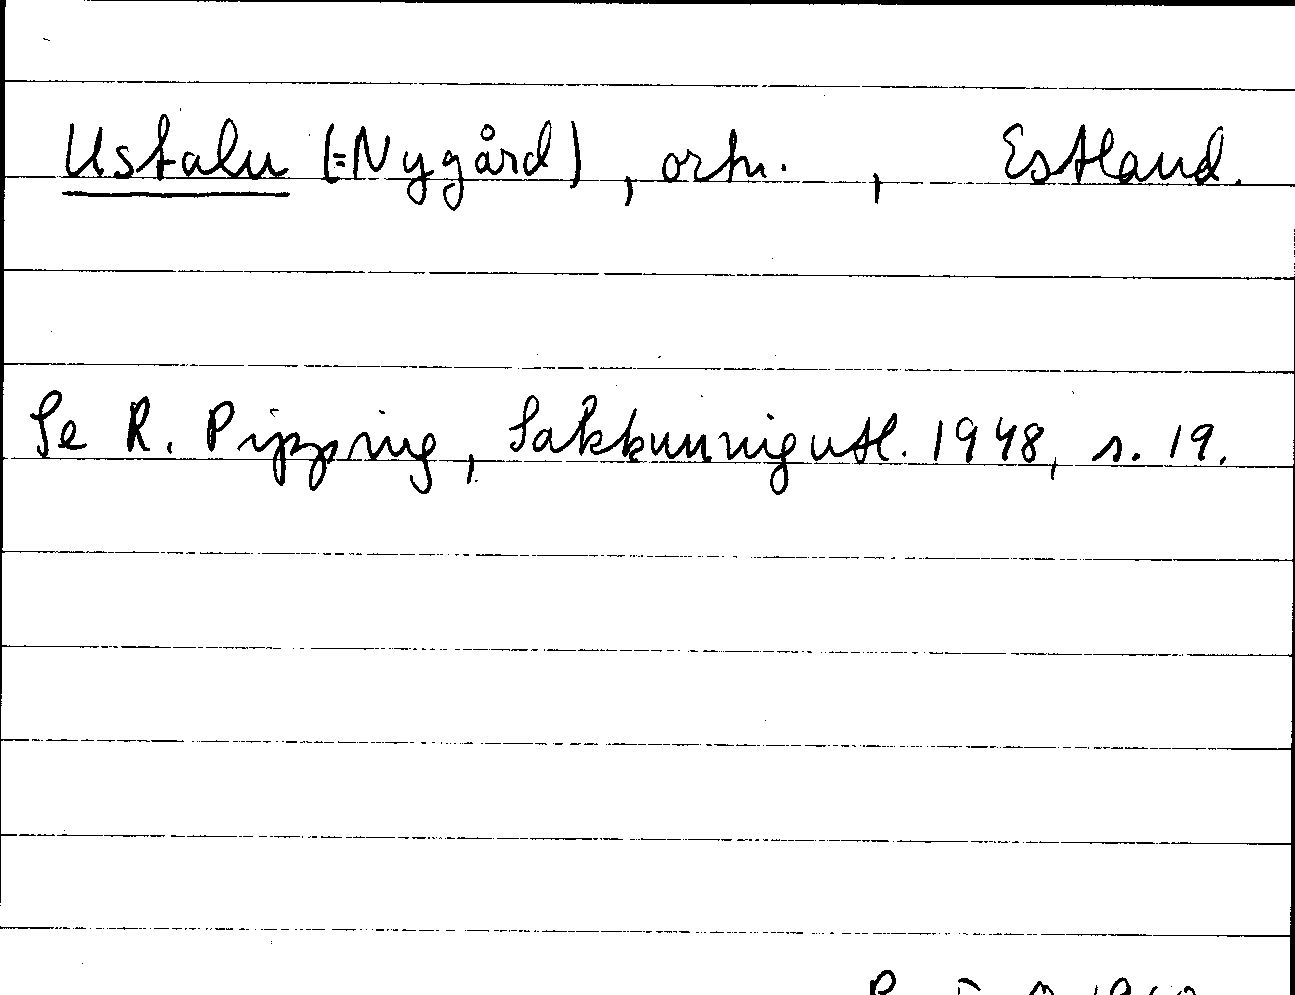 Ustalu (=Nygård), ortn. , Estland.
Se R. Pipping, Sakkunnigutl. 1948, s. 19.